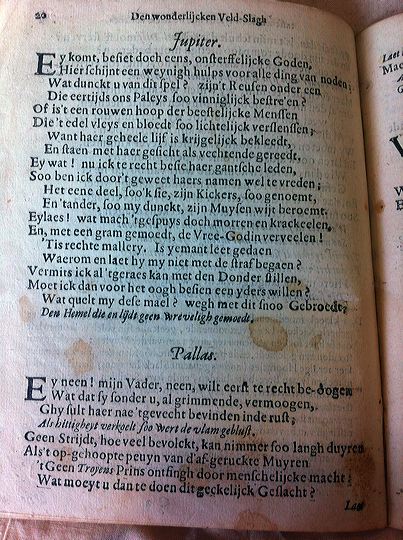 20 Den wonderlijcken Veld-Slagh
Jupiter.
EY komt, besiet doch eens, onsterffelijcke Goden,
Hier schijnt een weynigh hulps voor alle ding van noden;
Wat dunckt u van dit spel? zijn't Reusen onder een
Die eertijds ons Paleys soo vinniglijck bestre'en?
Of is't een rouwen hoop der beestelijcke Menssen
Die 't edel vleys en bloedt soo lichtelijck verslenssen;
Want haer geheele lijf is krijgelijck bekleedt,
En staen met haer gesicht als vechtende gereedt,
Ey wat! nu ick te recht besie haer gantsche leden,
Soo ben ick door 't geweet haers namen wel te vreden;
Het eene deel, soo'k sie, zijn Kickers, soo genoemt,
En 'tander, soo my dunckt, zijn Muysen wijt beroemt.
Eylaes! wat mach 'tgespuys doch morren en krackeelen,
En, met een gram gemoedt, de Vree-Godin verveelen!
'Tis rechte mallery. Is yemant leet gedaen
Waerom en laet hy my niet met de straf begaen?
Vermits ick al 'tgeraes kan met den Donder stillen,
Moet ick dan voor het oogh besien een yders willen?
Wat quelt my dese mael? wegh met dit snoo Gebroedt;
Den Hemel die en lijdt geen wreveligh gemoedt.
Pallas.
EY neen! mijn Vader, neen, wilt eerst te recht be-oogen
Wat dat sy sonder u, al grimmende, vermoogen,
Ghy sult haer nae 'tgevecht bevinden inde rust;
Als hittigheyt verkoelt, soo wert de vlam geblust.
Geen Strijdt, hoe veel bevolckt, kan nimmer soo langh duyren
Als't op-gehoopte peuyn van d'af-geruckte Muyren
't Geen Trojens Prins ontfingh door menschelijcke macht;
Wat moeyt u dan te doen dit geckelijck Geslacht?
Laet